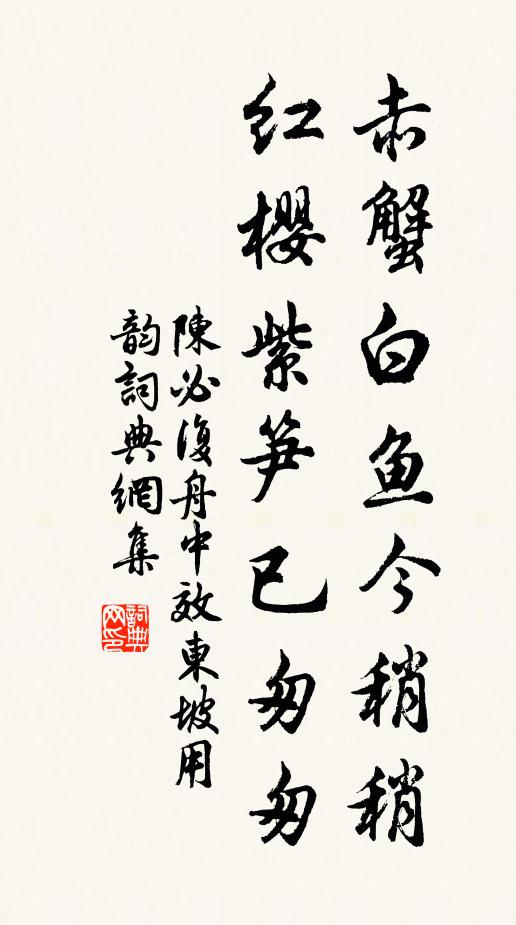 赤蟹白魚今稍稍
紅櫻紫笋已匆匆
陳必復舟中效東坡用
韵詞典網集
詞典
网印